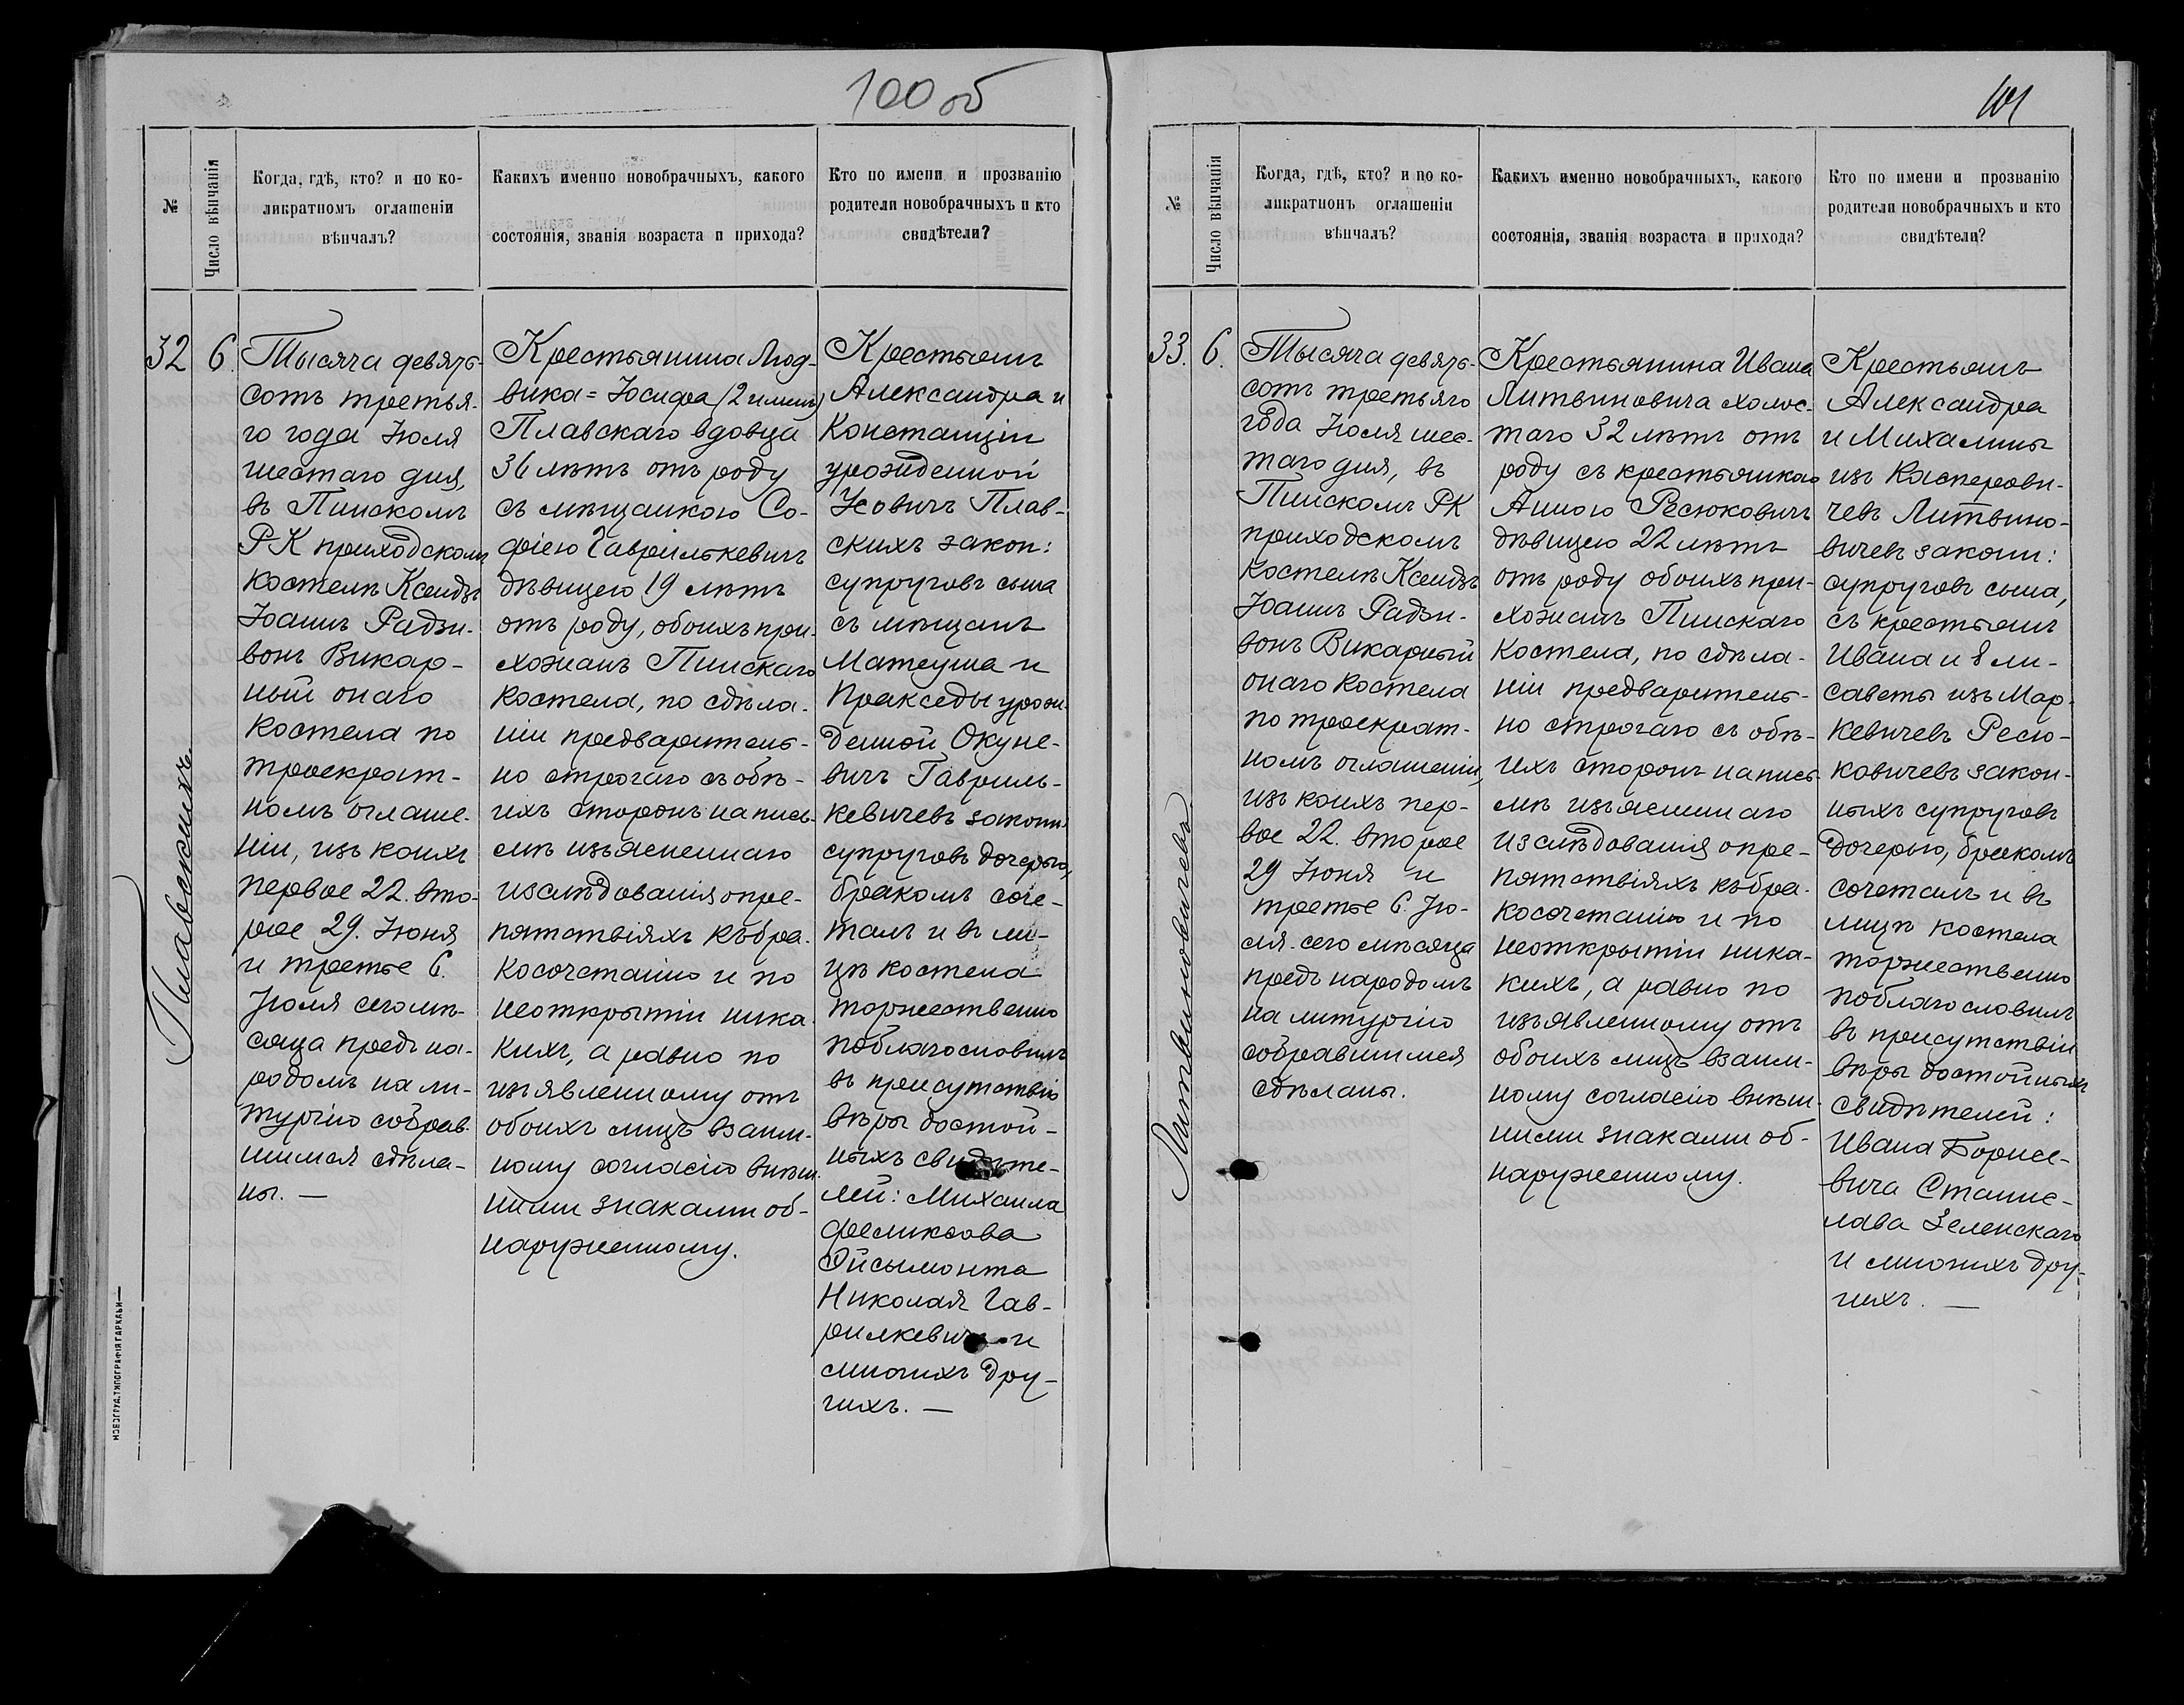 100 об
№
Число вѣнчанія
Когда, гдѣ, кто? и по ко-
ликратномъ оглашеніи
вѣнчалъ?
Какихъ именно новобрачныхъ, какого
состоянія, званія возраста и прихода?
Кто по имени и прозванію
родители новобрачныхъ и кто
свидѣтели?
Плавскихъ
32
6.
Тысяча девять-
сотъ третья-
го года Іюля
шестаго дня,
въ Пинскомъ
Р К приходскомъ
костелѣ Ксендзъ
Іоаннъ Радзи-
вонъ Викар-
ный онаго
костела по
троекрат-
номъ оглаше-
ніи, изъ коихъ
первое 22. вто-
рое 29. Іюня
и третье 6.
Іюля сего мѣ-
сяца предъ на-
родомъ на ли-
тургію собрав-
шимся сдѣла-
ны. —
Крестьянина Люд-
вика=Іосифа (2 именъ)
Плавскаго вдовца
36 лѣтъ отъ роду
съ мѣщанкою Со-
фіею Гаврилькевичъ
дѣвицею 19 лѣтъ
отъ роду, обоихъ при-
хожанъ Пинскаго
костела, по сдѣла-
ніи предваритель-
но строгаго съ обѣ-
ихъ сторонъ на пись-
мѣ изъясненнаго
изслѣдованія о пре-
пятствіяхъ къ бра-
косочетанію и по
неоткрытіи ника-
кихъ, а равно по
изъявленному отъ
обоихъ лицъ взаим-
ному согласію внѣш-
ними знаками об-
наруженному.
Крестьянъ
Александра и
Констанціи
урожденной
Усовичъ Плав-
скихъ закон:
супруговъ сына
съ мѣщанъ
Матеуша и
Пракседы урож-
денной Окуне-
вичъ Гавриль-
кевичевъ законн.
супруговъ дочерью,
бракомъ соче-
талъ и въ ли-
цѣ костела
торжественно
поблагословилъ
въ присутствіи
вѣры достой-
ныхъ свидѣте-
лей: Михаила
Феликсова
Ойсымонта
Николая Гав-
рилкевича и
многихъ дру-
гихъ. —
НОВОГРУД. ТИПОГРАФІЯ ГАРКАВИ—
101
№
Число вѣнчанія
Когда, гдѣ, кто? и по ко-
ликратномъ оглашеніи
вѣнчалъ?
Какихъ именно новобрачныхъ, какого
состоянія, званія возраста и прихода?
Кто по имени и прозванію
родители новобрачныхъ и кто
свидѣтели?
Литвиновичевъ
33.
6.
Тысяча девять-
сотъ третьяго
года Іюля шес-
таго дня, въ
Пинскомъ РК
приходскомъ
костелѣ Ксендзъ
Іоаннъ Радзи-
вонъ Викарный
онаго костела
по троекрат-
номъ оглашеніи,
изъ коихъ пер-
вое 22. второе
29 Іюня и
третье 6. Ію-
ля сего мѣсяца
предъ народомъ
на литургію
собравшимся
сдѣланы.
Крестьянина Ивана
Литвиновича холос-
таго 32 лѣтъ отъ
роду съ крестьянкою
Анною Ресюковичъ
дѣвицею 22 лѣтъ
отъ роду обоихъ при-
хожанъ Пинскаго
костела, по сдѣла-
ніи предваритель-
но строгаго съ обѣ-
ихъ сторонъ на пись-
мѣ изъясненнаго
изслѣдованія о пре-
пятствіяхъ къ бра-
косочетанію и по
неоткрытіи ника-
кихъ, а равно по
изъявленному отъ
обоихъ лицъ взаим-
ному согласію внѣш-
ними знаками об-
наруженному.
Крестьянъ
Александра
и Михалины
изъ Каспрови-
чевъ Литвино-
вичевъ законн:
супруговъ сына,
съ крестьянъ
Ивана и Ели-
саветы изъ Мар-
кевичевъ Ресю-
ковичевъ закон-
ныхъ супруговъ
дочерью, бракомъ
сочеталъ и въ
лицѣ костела
торжественно
поблагословилъ
въ присутствіи
вѣры достойныхъ
свидѣтелей:
Ивана Борисе-
вича Станис-
лава Зеленскаго
и многихъ дру-
гихъ. —